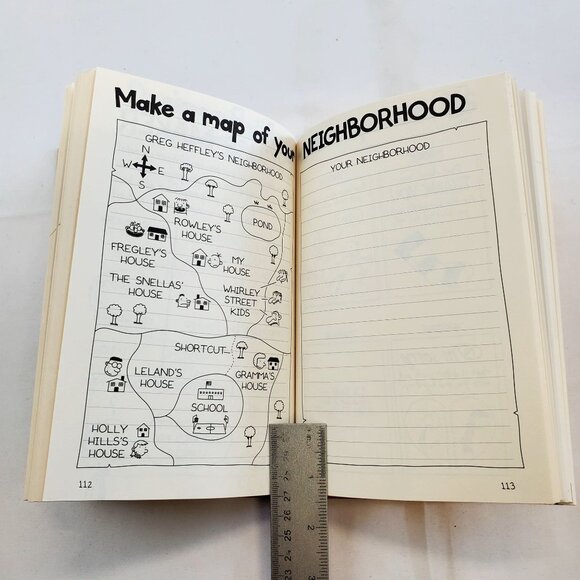 Make a map of your NEIGHBORHOOD
GREG HEFFLEY'S NEIGHBORHOOD
N
W E
S
ROWLEY'S
HOUSE
POND
FREGLEY'S
HOUSE
MY
HOUSE
THE SNELLAS'
HOUSE
WHIRLEY
STREET
KIDS
SHORTCUT
LELAND'S
HOUSE
GRAMMA'S
HOUSE
SCHOOL
HOLLY
HILLS'S
HOUSE
112
YOUR NEIGHBORHOOD
113
1
2
3
23 24 25 26 27 28 29